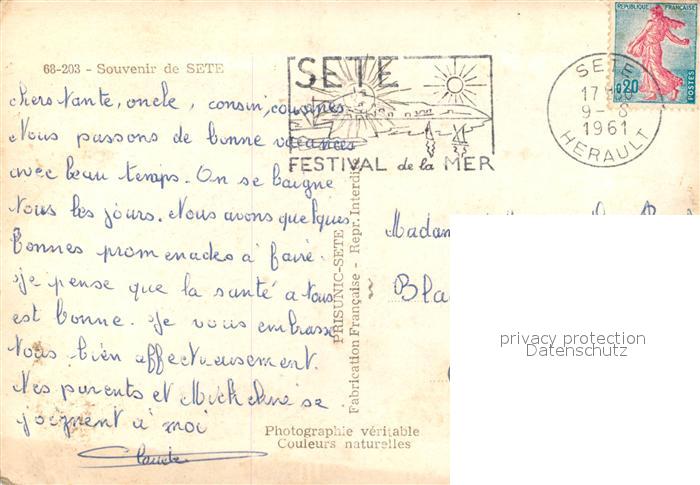 68-203 - Souvenir de SETE
SETE
FESTIVAL de la MER
REPUBLIQUE FRANÇAISE
0,20
POSTES
SETE
17H
9-8
1961
HERAULT
chers tante, oncle, cousin, cousines
Nous passons de bonne vacances
avec beau temps. On se baigne
tous les jours. Nous avons quelques
bonnes promenades à faire.
Je pense que la santé a tous
est bonne. Je vous embrasse
tous bien affectueusement.
Mes parents et Micheline se
joignent à moi
Claude
PRISUNIC-SETE
Fabrication Française - Repr. Interdite
Photographie véritable
Couleurs naturelles
Madame
Bla
privacy protection
Datenschutz